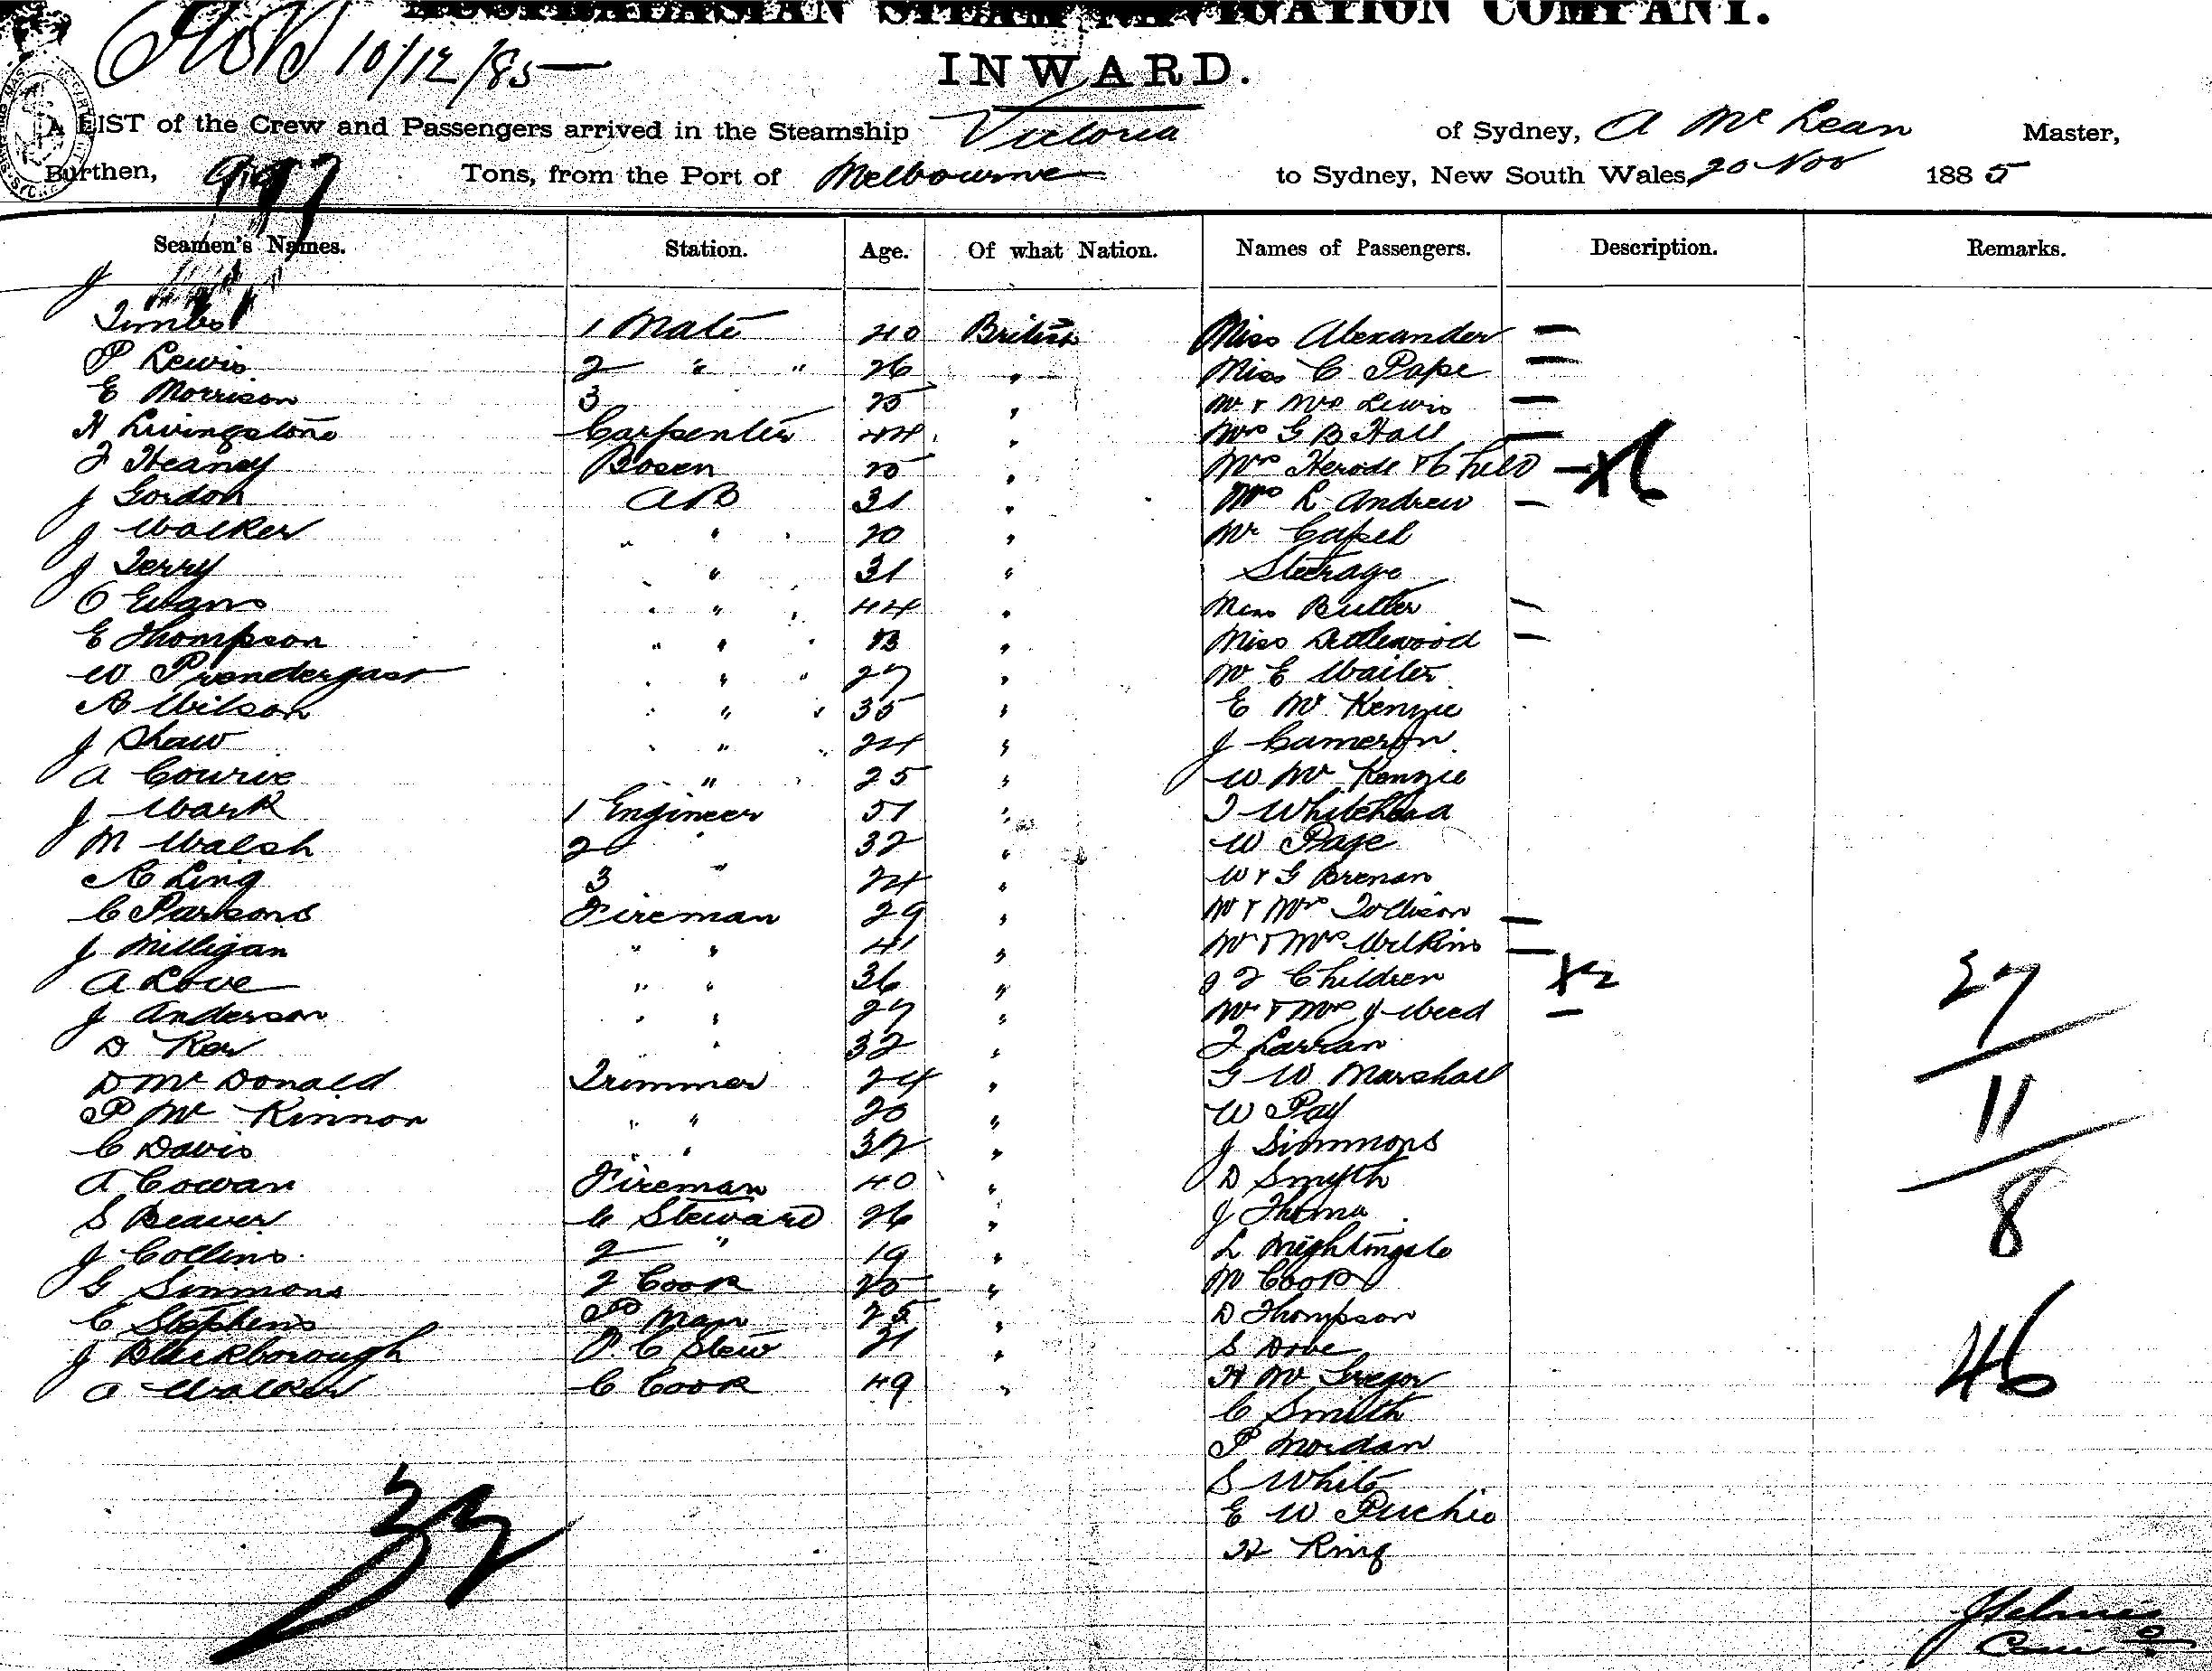 AUSTRALASIAN STEAM NAVIGATION COMPANY.
10/12/85
INWARD.
A LIST of the Crew and Passengers arrived in the Steamship Victoria of Sydney, A Mc Lean Master,
Burthen, Tons, from the Port of Melbourne to Sydney, New South Wales, 20 Nov 1885
Seamen's Names. Station. Age. Of what Nation. Names of Passengers. Description. Remarks.
J Timbs 1 Mate 40 British Miss Alexander —
P Lewis 2 " " 26 " Miss C Pape —
E Morrison 3 25 " Mr & Mrs Lewis —
H Livingstone Carpenter 44 " Mrs G B Hall —
J Heaney Bosen 25 " Mrs Herode & Child —x
J Gordon AB 31 " Mrs L Andrew —
J Walker " " 20 " Mr Capel
J Terry " 31 " Steerage
O Evans " " 44 " Miss Butler —
E Thompson " " " Miss —
W Prendergast " " 27 " E
A Wilson " " 35 " E Mc Kenzie
J Shaw " " 24 " J Cameron
A Cowrie " 25 " W Mc Kenzie
J Wark 1 Engineer 51 " T Whitehead
M Walsh 2 " 32 " W Page
A Ling 3 " 24 " W & G Brenan
C Parsons Fireman 29 " Mr & Mrs Tollison —
J Milligan " " 41 " Mr & Mrs Wilkins —
A Love " " 36 " 2 Children x2
J Anderson " " 27 " Mr & Mrs J Weed —
D Ker " 32 " Larran
D Mc Donald Trimmer 24 " G W Marshall
P Mc Kinnon " " 20 " W Pay
C Davis " " 32 " J Simmons
A Cowan Fireman 40 " D Smyth
S Beaver C Steward 26 " J Thoma
J Collins 2 " 19 " L Nightingale
G Simmons 2 Cook 25 " M Cook
C Stephens P Man 25 " D Thompson
J Blackborough C Stew 21 " S Dove
A Walker C Cook 49 " H Mc Gregor
C Smith
P Mordan
S White
E W
H King
27
11
8
46
32